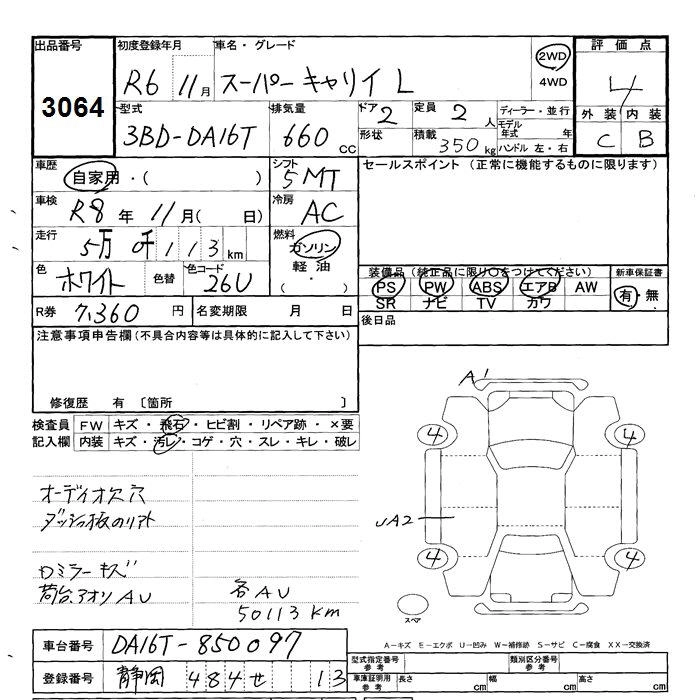 出品番号 3064
初度登録年月 R6 11月
車名・グレード スーパーキャリイ L
2WD 4WD
評価点 4
外装 内装
C B
型式 3BD-DA16T
排気量 660 cc
ドア 2 形状
定員 2 人
積載 350 kg
ディーラー・並行
モデル年式 年
ハンドル 左・右
車歴 自家用・( )
シフト 5MT
セールスポイント (正常に機能するものに限ります)
車検 R8年 11月( 日)
冷房 AC
走行 5万 0千 1 1 3 km
燃料 ガソリン 軽油 ( ・ )
色 ホワイト 色替 色コード 26U
装備品 (純正品に限り○をつけてください) 新車保証書
PS PW ABS エアB AW 有・無
SR ナビ TV カワ
R券 7,360 円 名変期限 月 日
後日品
注意事項申告欄 (不具合内容等は具体的に記入して下さい)
修復歴 有 〔箇所 〕
検査員 FW キズ・飛石・ヒビ割・リペア跡・×要
記入欄 内装 キズ・汚レ・コゲ・穴・スレ・キレ・破レ
A'
4 4
オーディオ欠穴
ダッシュ板のリアト
UA2
4 4
Dミラーキズ
荷台、アオリAU 各AU
50113km
スペア
A-キズ E-エクボ U-凹み W-補修跡 S-サビ C-腐食 XX-交換済
車台番号 DA16T-850097
型式指定番号 参考 類別区分番号 参考
登録番号 静岡 484 せ 13
車庫証明用 参考 長さ cm 幅 cm 高さ cm